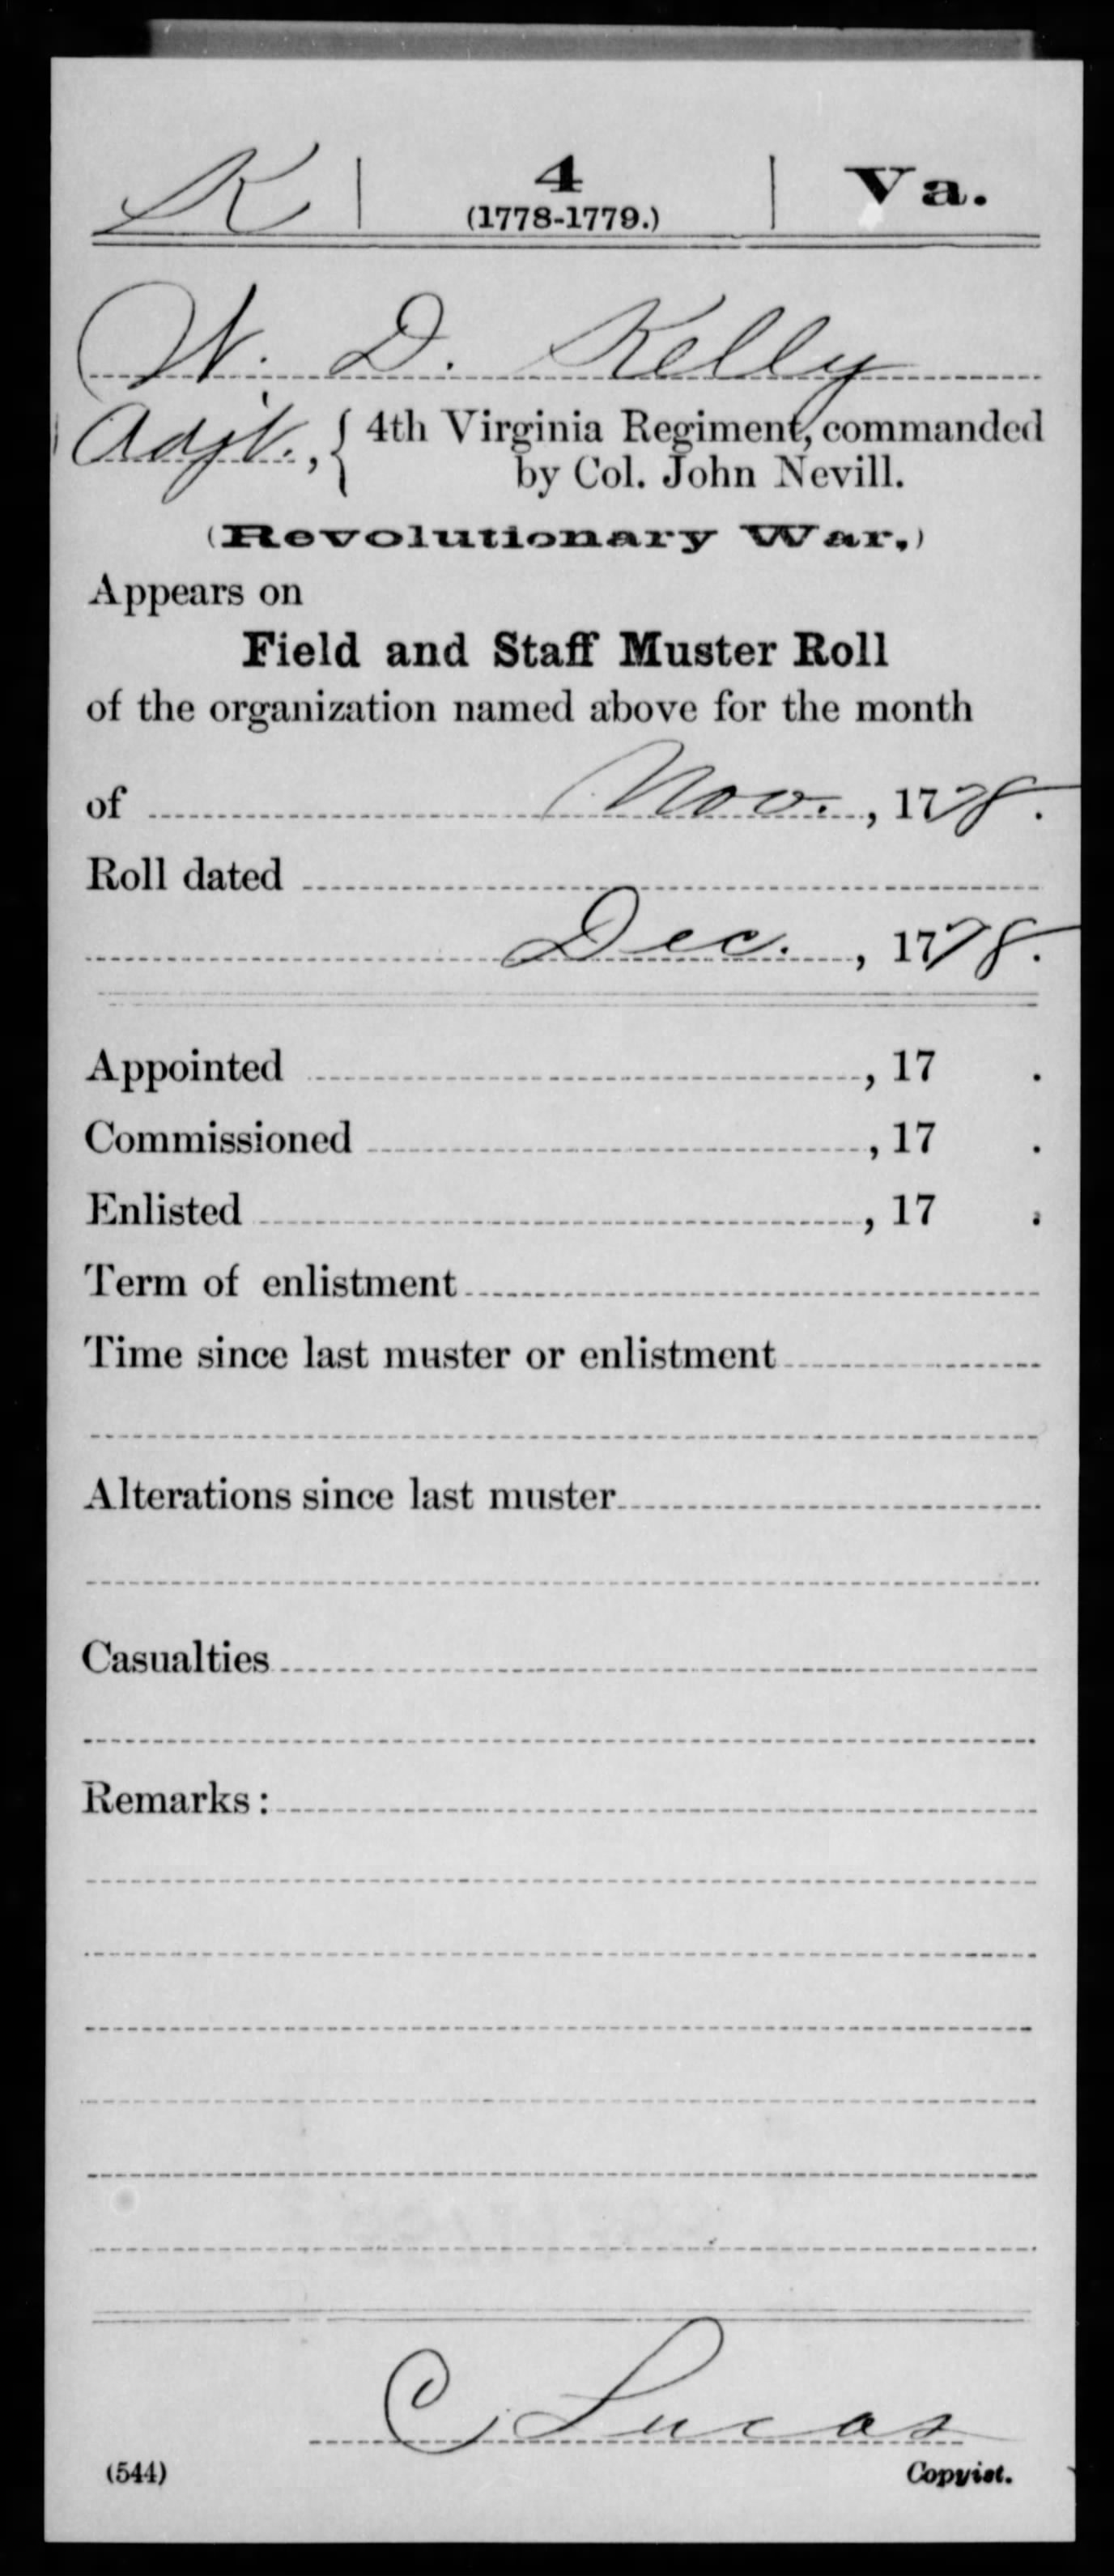 K | 4 | Va.
(1778-1779.)
W. D. Kelly
Adjt., { 4th Virginia Regiment, commanded
by Col. John Nevill.
(Revolutionary War.)
Appears on
Field and Staff Muster Roll
of the organization named above for the month
of Nov., 1778.
Roll dated
Dec., 1778.
Appointed , 17 .
Commissioned , 17 .
Enlisted , 17 .
Term of enlistment
Time since last muster or enlistment
Alterations since last muster
Casualties
Remarks:
C Lucas
(544) Copyist.